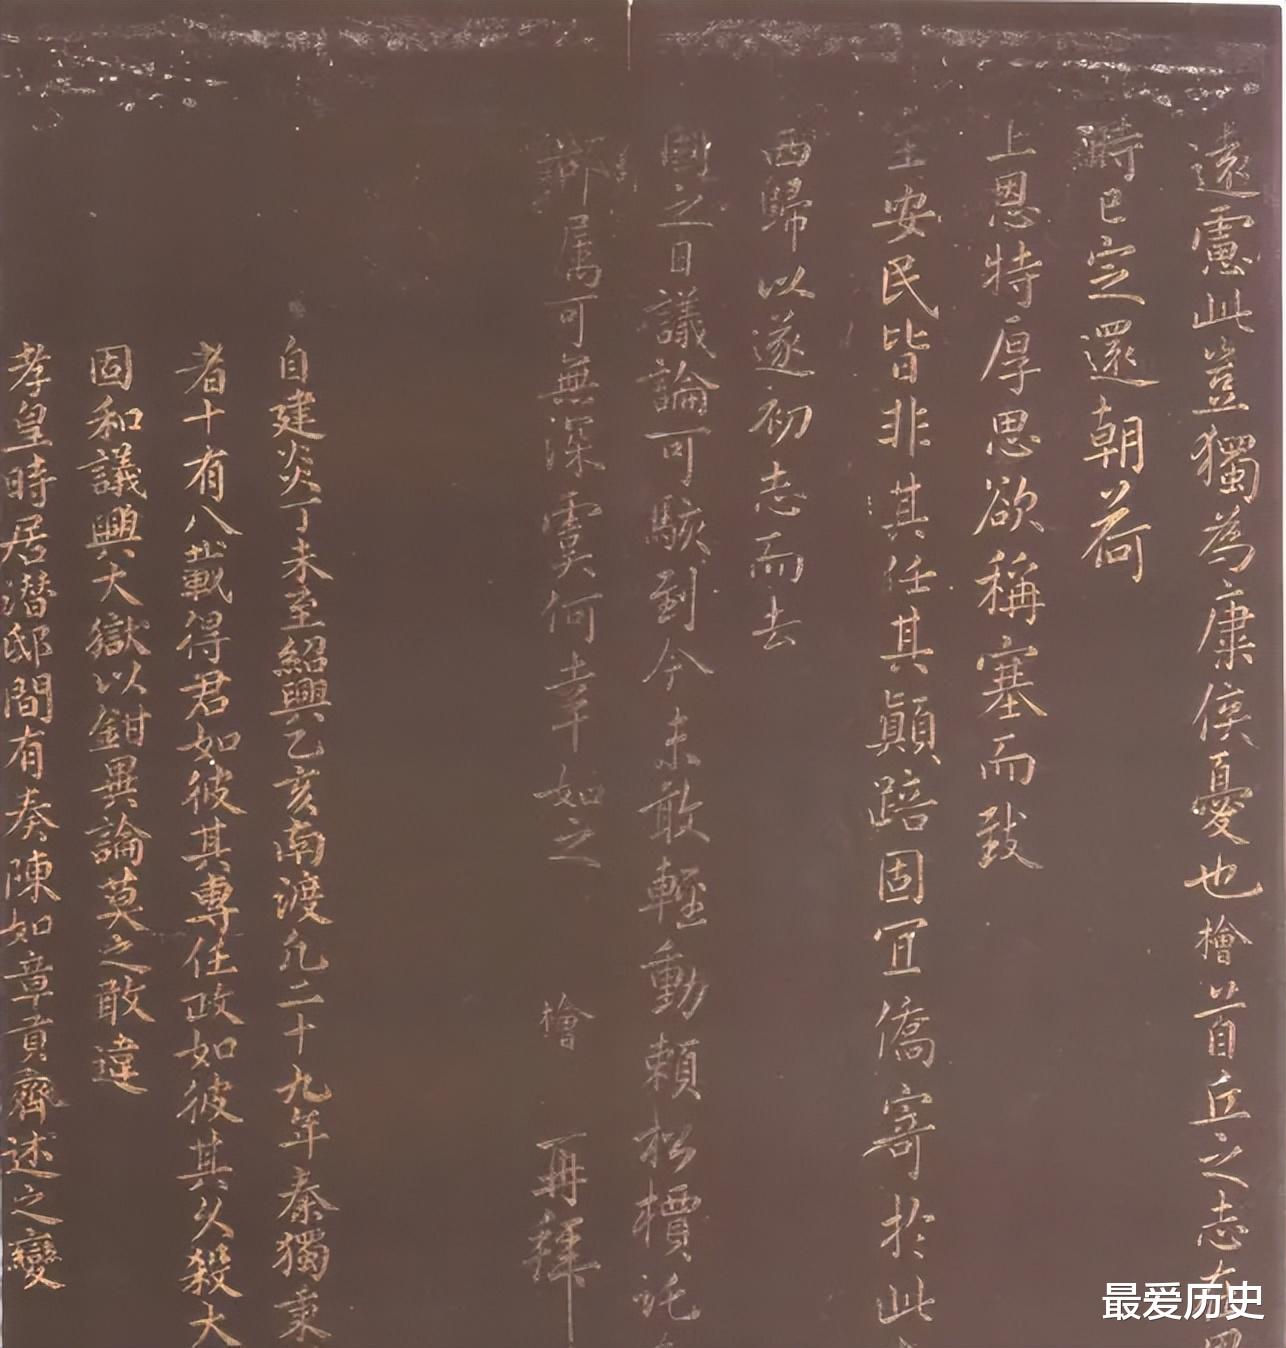 遠慮此豈獨為康侯憂也檜首丘之志在
時已定還朝荷
上恩特厚思欲稱塞而致
主安民皆非其任其顛踣固宜僑寄於此
西歸以遂初志而去
國之日議論可駭到今未敢輕動賴松檟託
鄰属可無深虞何幸如之 檜 再拜
自建炎丁未至紹興乙亥南渡凡二十九年秦獨秉
者十有八載得君如彼其專任政如彼其久殺大
固和議興大獄以鉗異論莫之敢違
孝皇時居潛邸間有奏陳如章貢齊述之變
最爱历史